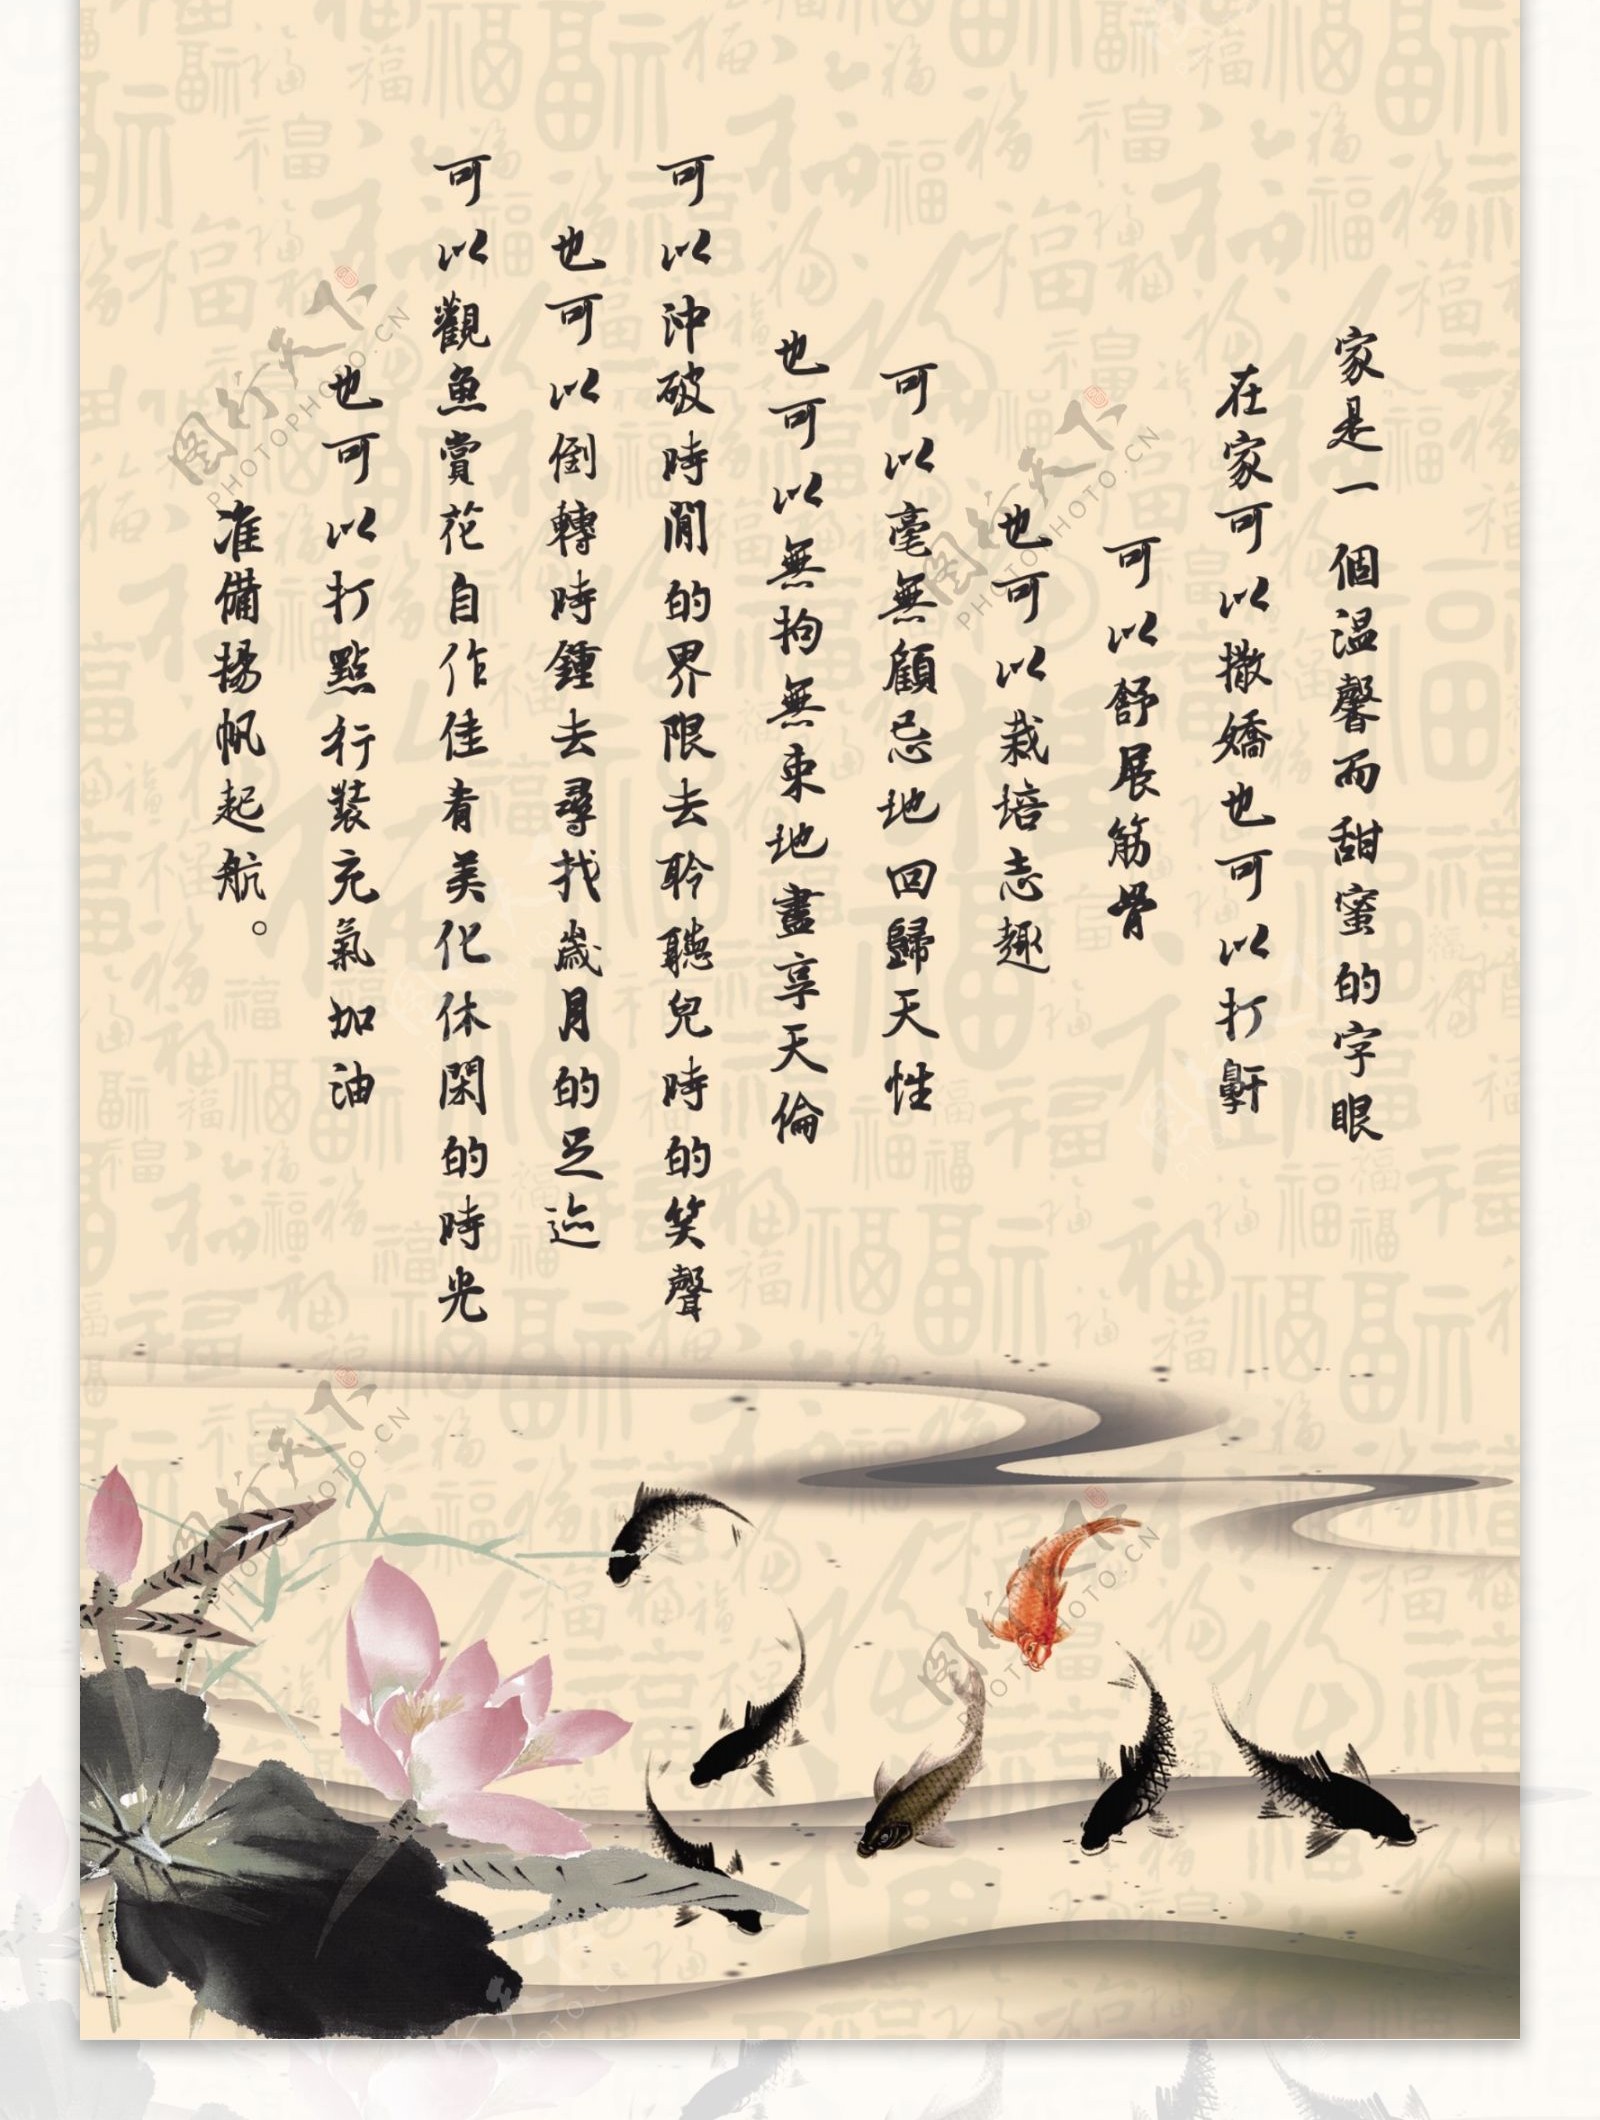 家是一個温馨而甜蜜的字眼
在家可以撒嬌也可以打鼾
可以舒展筋骨
也可以栽培志趣
可以毫無顧忌地回歸天性
也可以無拘無束地盡享天倫
可以沖破時間的界限去聆聽兒時的笑聲
也可以倒轉時鍾去尋找歲月的足迹
可以觀魚賞花自作佳肴美化休閑的時光
也可以打點行裝充氣加油
准備揚帆起航。
图行天下
PHOTOPHO.CN
图行天下
PHOTOPHO.CN
图行天下
PHOTOPHO.CN
图行天下
PHOTOPHO.CN